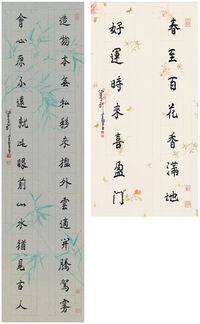 造物本無私移來檻外雲適開騰駕霧
會心原不遠就此眼前山水猶見古人
春至百花香滿地
好運時來喜盈门